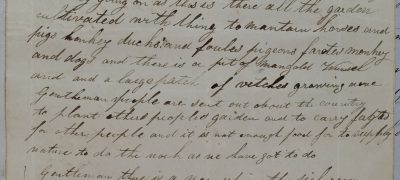 going on as this is there all the garden
cultivated with thing to mantain horses and
pigs donkey ducks and foules pigeons
and dogs and there is a pit of mangold
and and a large patch of vetches growing now
Gentleman people are sent out about the country
to plant other peoples gaiden and to carry
for other people and it is not enough food for to
nature to do the work as we have got to do
Gentleman this is a